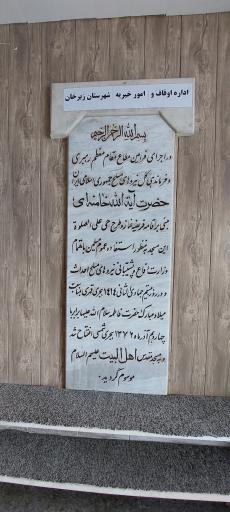 اداره اوقاف و امور خیریه شهرستان زبرخان
بسم الله الرحمن الرحیم
در اجرای فرامین مطاع مقام معظم رهبری
و فرماندهی کل نیروهای مسلح جمهوری اسلامی ایران
حضرت آیة الله خامنه ای
مبنی بر اقامه فریضه نماز و طرح حی علی الصلوة
این مسجد به منظور استفاده عموم مسلمین باهتمام
وزارت دفاع و پشتیبانی نیروهای مسلح احداث
و در روز بیستم جمادی الثانی ۱۴۱۴ هجری قمری بمناسبت
میلاد مبارک حضرت فاطمه سلام الله علیها برابر با
چهاردهم آذر ماه ۱۳۷۲ هجری شمسی افتتاح شد
و به مسجد مقدس اهل البیت علیهم السلام
موسوم گردید.